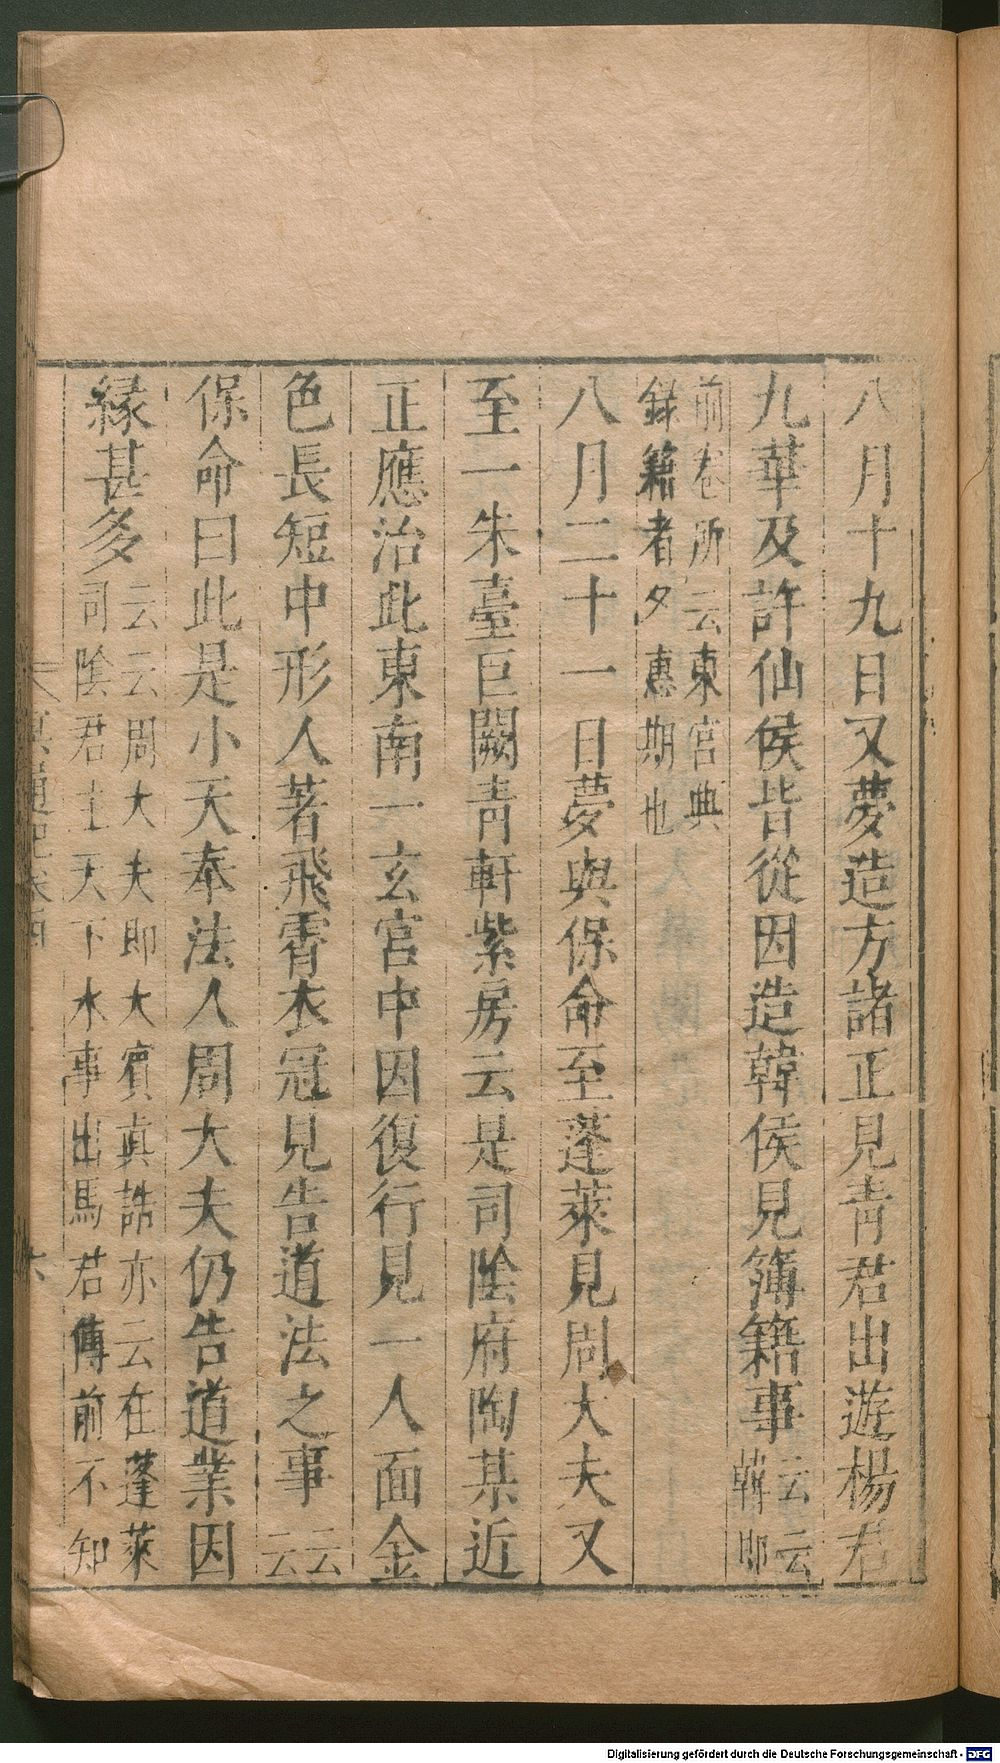 八月十九日又夢造方諸正見青君出遊楊君
九華及許仙侯皆從因造韓侯見簿籍事云云韓即
前卷所云東宮典
録籍者夕惠期也
八月二十一日夢與保命至蓬萊見周大夫又
至一朱臺巨闕青軒紫房云是司陰府陶某近
正應治此東南一玄宮中因復行見一人面金
色長短中形人著飛霄衣冠見告道法之事云云
保命曰此是小天奉法人周大夫仍告道業因
縁甚多云云周大夫即大賓真誥亦云在蓬萊
司陰君主天下水事出馬君傳前不知
冥通記卷四
六
Digitalisierung gefördert durch die Deutsche Forschungsgemeinschaft - DFG